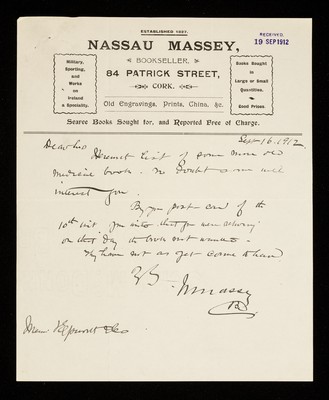 ESTABLISHED 1827.
NASSAU MASSEY,
BOOKSELLER,
84 PATRICK STREET,
CORK.
Old Engravings, Prints, China, &c.
Military,
Sporting,
and
Works
on
Ireland
a Speciality.
Books Bought
in
Large or Small
Quantities.
Good Prices.
RECEIVED.
19 SEP 1912
Scarce Books Sought for, and Reported Free of Charge.
Sept 16. 1912
Dear Sirs
Herewith list of some more old
Medical books. no doubt some will
interest you.
By your post card of the
10th inst. you write that you were returning
on that day the books not wanted.
They have not as yet come to hand
N Massey